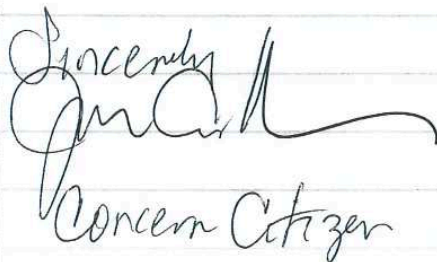 Sincerely
Concern Citizen